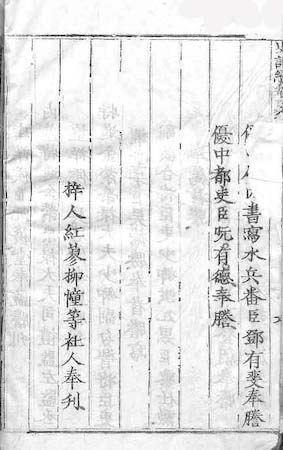 書寫水兵番臣鄧有斐奉謄
優中都吏臣阮有德奉謄
梓人紅蓼柳幢等社人奉刊